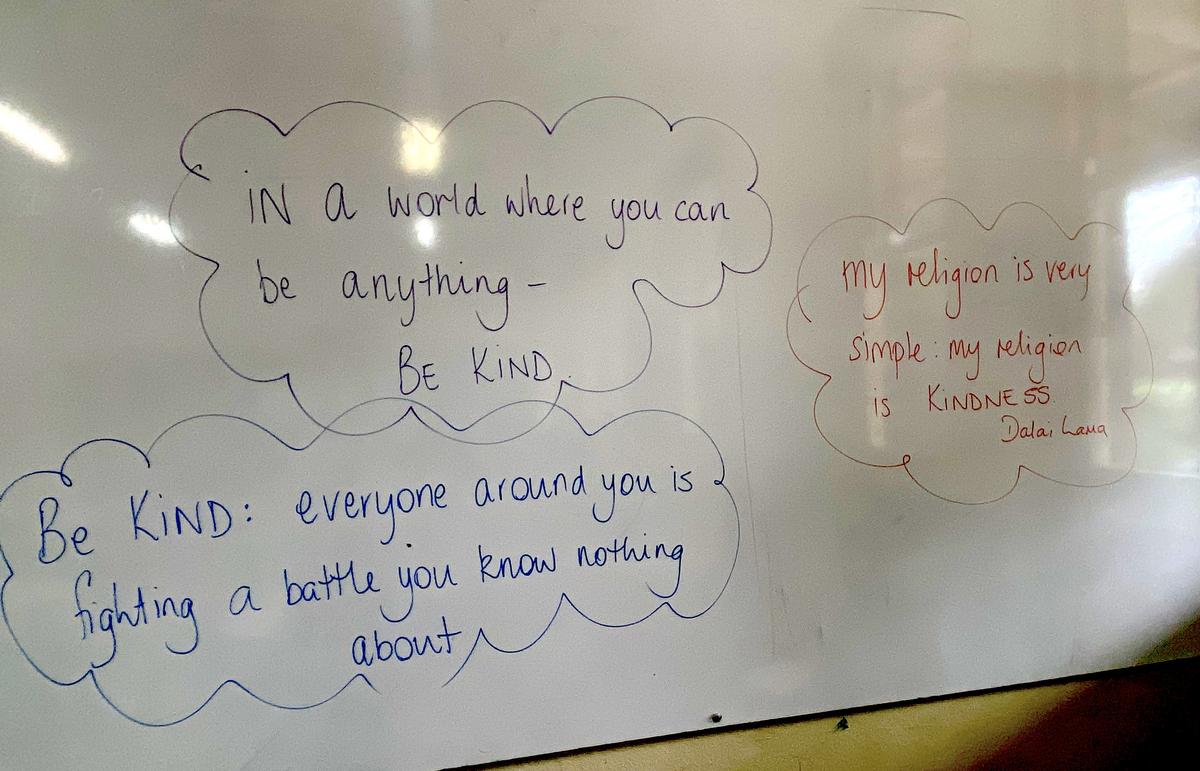 iN a world where you can
be anything -
BE KiND
Be KiND: everyone around you is
fighting a battle you know nothing
about
my religion is very
simple: my religion
is KiNDNESS
Dalai Lama